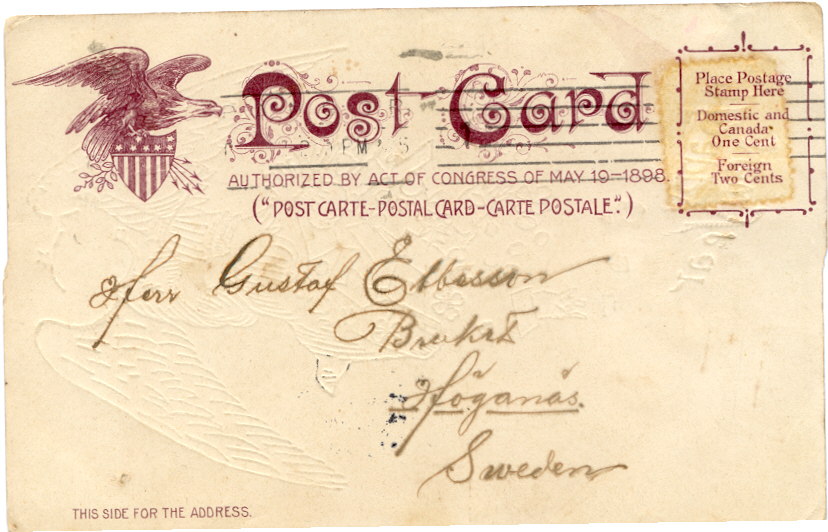 Post Card
Place Postage
Stamp Here
Domestic and
Canada
One Cent
Foreign
Two Cents
AUTHORIZED BY ACT OF CONGRESS OF MAY 19–1898.
("POST CARTE–POSTAL CARD–CARTE POSTALE".)
Herr Gustaf Elbesson
Bruket
Höganäs.
Sweden
THIS SIDE FOR THE ADDRESS.